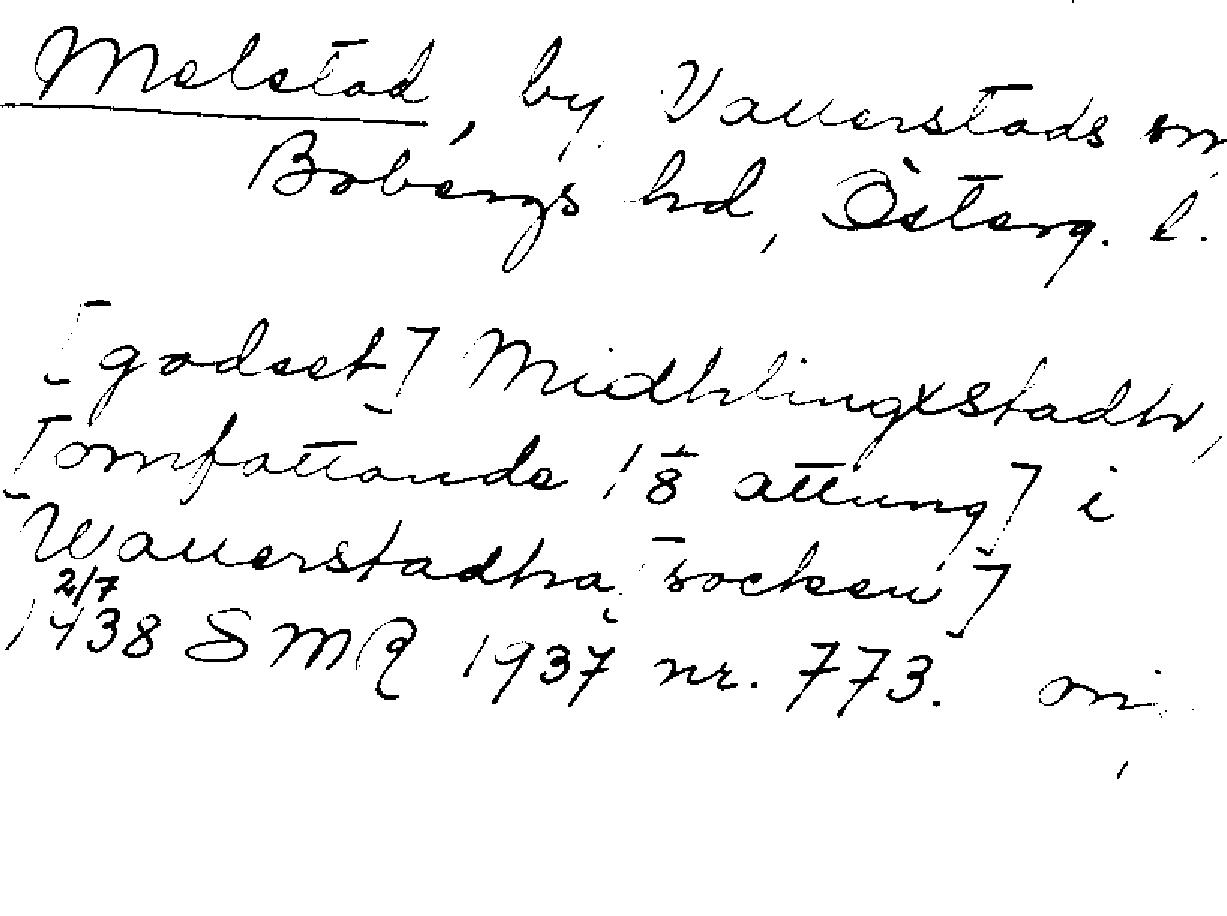 Melstad, by Vallerstads sn
Bobergs hd, Österg. l.
[godset] Midhlingxstadh,
[omfattande 1 1/8 attung] i
Wallerstadha [socken]
2/7
1438 SMR 1937 nr. 773.